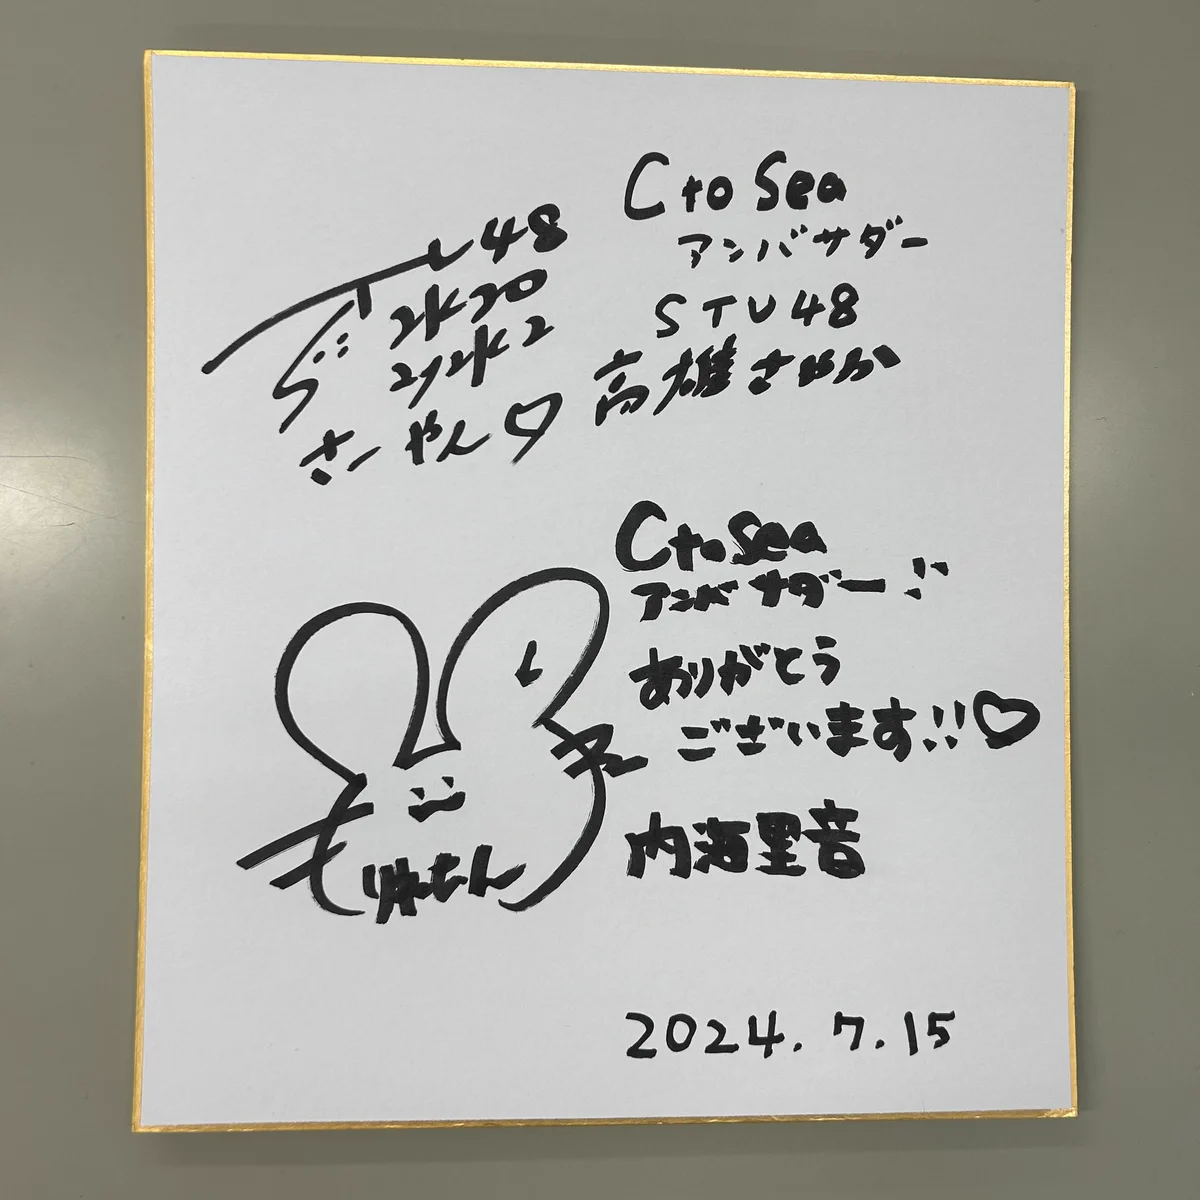 C to Sea
アンバサダー
STU48
高雄さやか
48
さーやん♡
C to Sea
アンバサダー
ありがとう
ございます!!♡
内海里音
りねちーん
2024.7.15